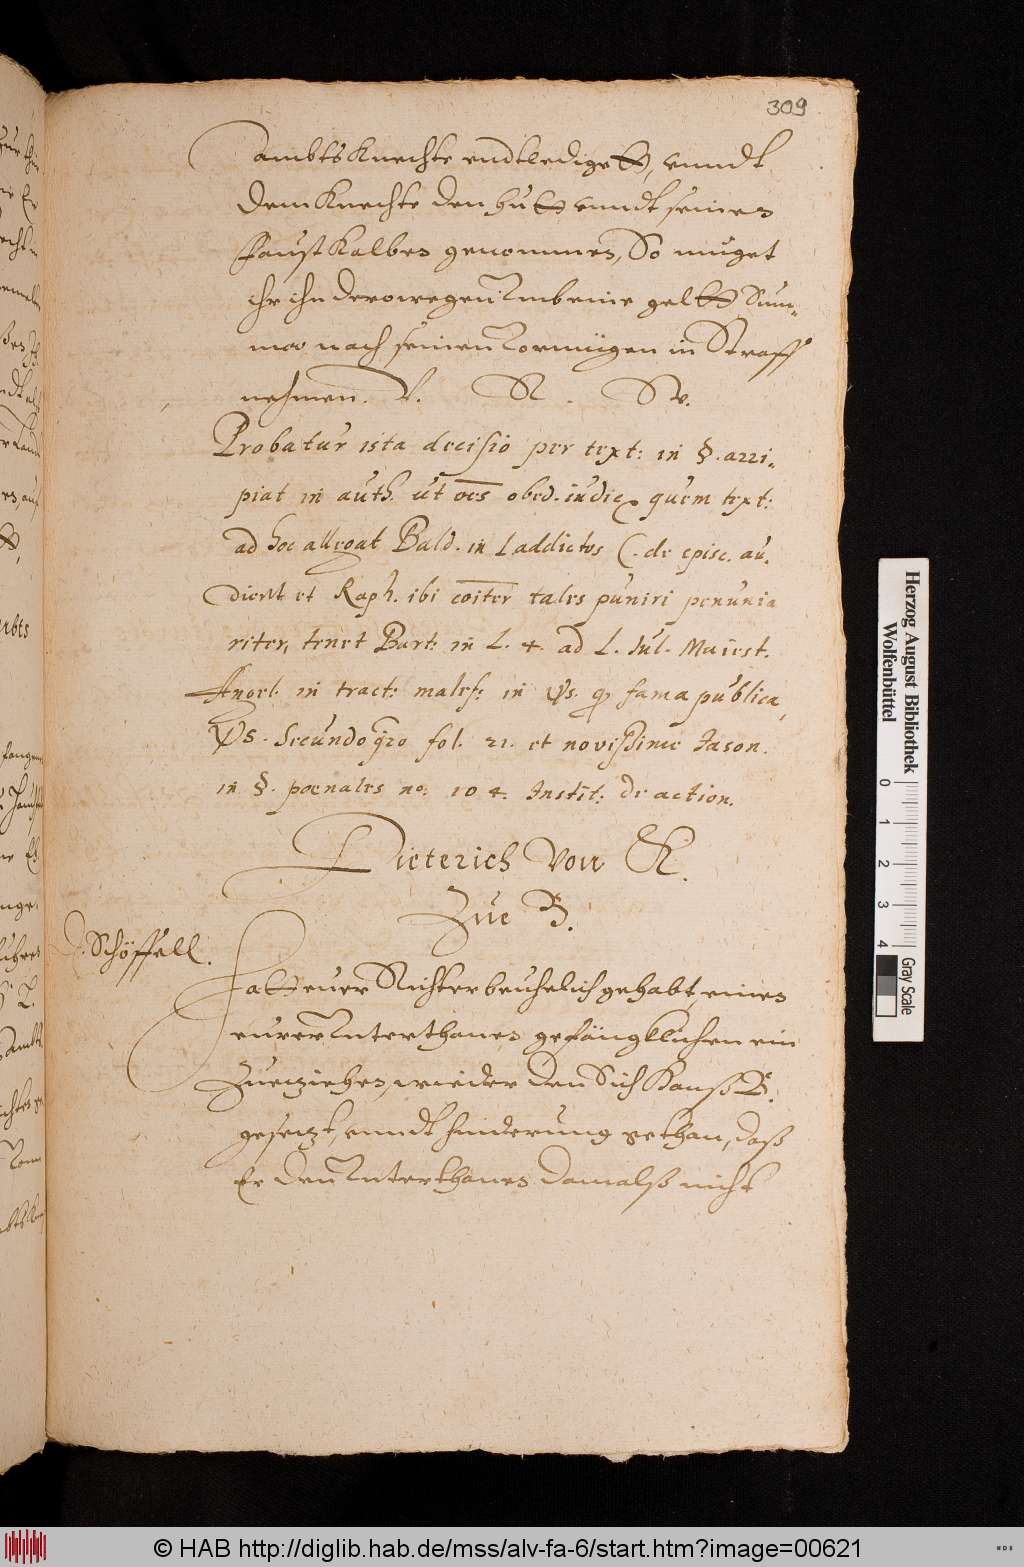 309
ambts Knechte endtlediget, unndt
dem Knechte den hutt unndt seines
Faust Kolbes genommen, So muget
ihr ihn derowegen umb eine geltt Sum-
ma nach seinen vermügen in Straff
nehmen. V. R. W.
Probatur ista decisio per text: in §. arri-
piat in auth. ut oēs obed. iudic. quem text:
ad hoc allegat Bald. in l addictos C. de episc. au.
dient et Raph. ibi coīter tales puniri penunia
riter, tenet Bart: in L. 4. ad L. Iul. Maiest.
Angel: in tract: malef: in fama publica,
Secundo fol. 21. et novissime Jason.
in §. poenales no: 104. Instit: de action.
Dieterich Von K.
Zue B.
Schöffell.
Hatt euer Richter beuhelich gehabt eines
eurer Unterthanes gefängklichen ein
Zueziehes, wieder den Sich Hanß B.
gesetzt, unndt hinderung gethan, daß
Er den Unterthanes damalß nicht
Herzog August Bibliothek
Wolfenbüttel
0 1 2 3 4
Gray Scale
© HAB http://diglib.hab.de/mss/alv-fa-6/start.htm?image=00621